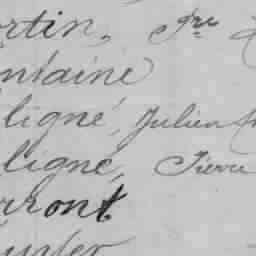 rtin, Jre
ntaine
ligné, Julien
ligné, Pierre
rront